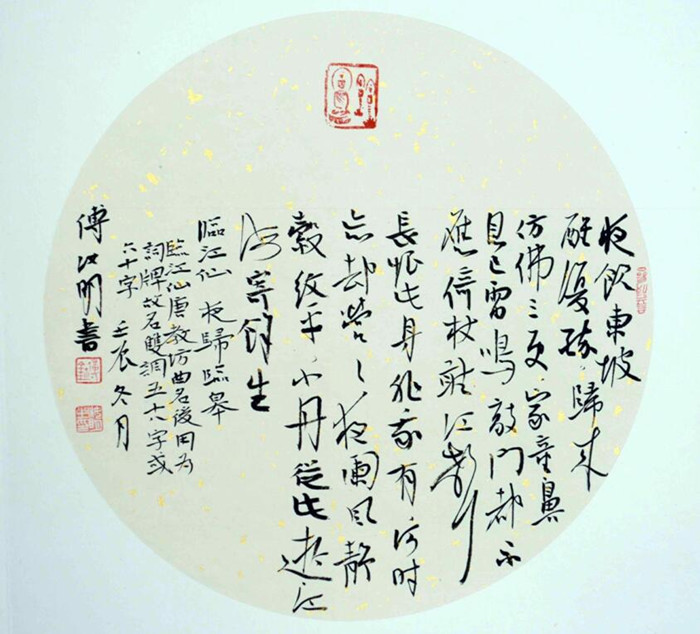 夜飲東坡
醒復醉歸來
仿佛三更家童鼻
息已雷鳴敲門都不
應倚杖聽江聲
長恨此身非我有何時
忘却營々夜闌風静
縠紋平小舟從此逝江
海寄餘生
臨江仙 夜歸臨皋
臨江仙唐教坊曲名後用為
詞牌故名雙調五十八字或
六十字 壬辰冬月
傅江明書